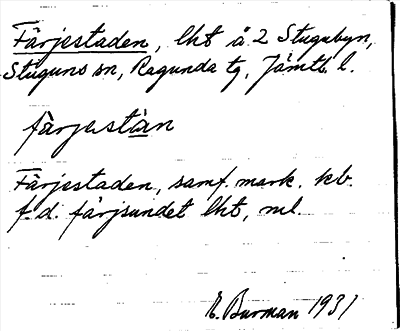 Färjestaden, lht å 2 Stugubyn,
Stuguns sn, Ragunda tg, Jämtl. l.
färjestàn
Färjestaden, samf. mark. kb.
f.d. färjsundet lht, ml.
E. Burman 1931